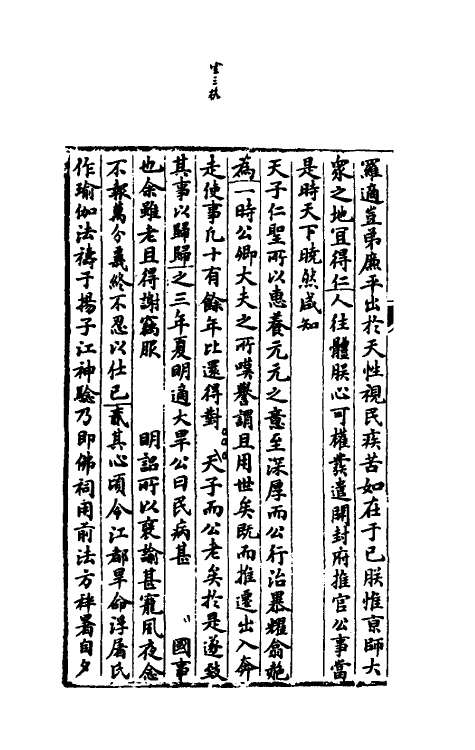 空三格
羅適豈弟廉平出於天性視民疾苦如在于已朕惟京師大
衆之地宜得仁人往體朕心可權發遣開封府推官公事當
是時天下曉然咸知
天子仁聖所以惠養元元之意至深厚而公行治暴耀翕赩
為一時公卿大夫之所嘆譽謂且用世矣既而推遷出入奔
走使事凡十有餘年比還得對 天子而公老矣於是遂致
其事以歸歸之三年夏明適大旱公曰民病甚 國事
也余雖老且得謝竊服 明詔所以褒諭甚寵夙夜念
不報萬分義終不忍以仕已貳其心頃令江都旱命浮屠氏
作瑜伽法禱于揚子江神驗乃即佛祠用前法方祥暑自夕